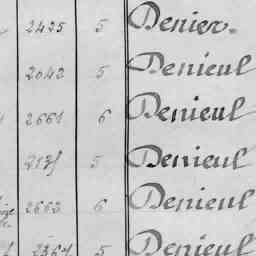 2425 5 Denier.
2042 5 Denieul
2661 6 Denieul
5 Denieul
2662 6 Denieul
2364 5 Denieul